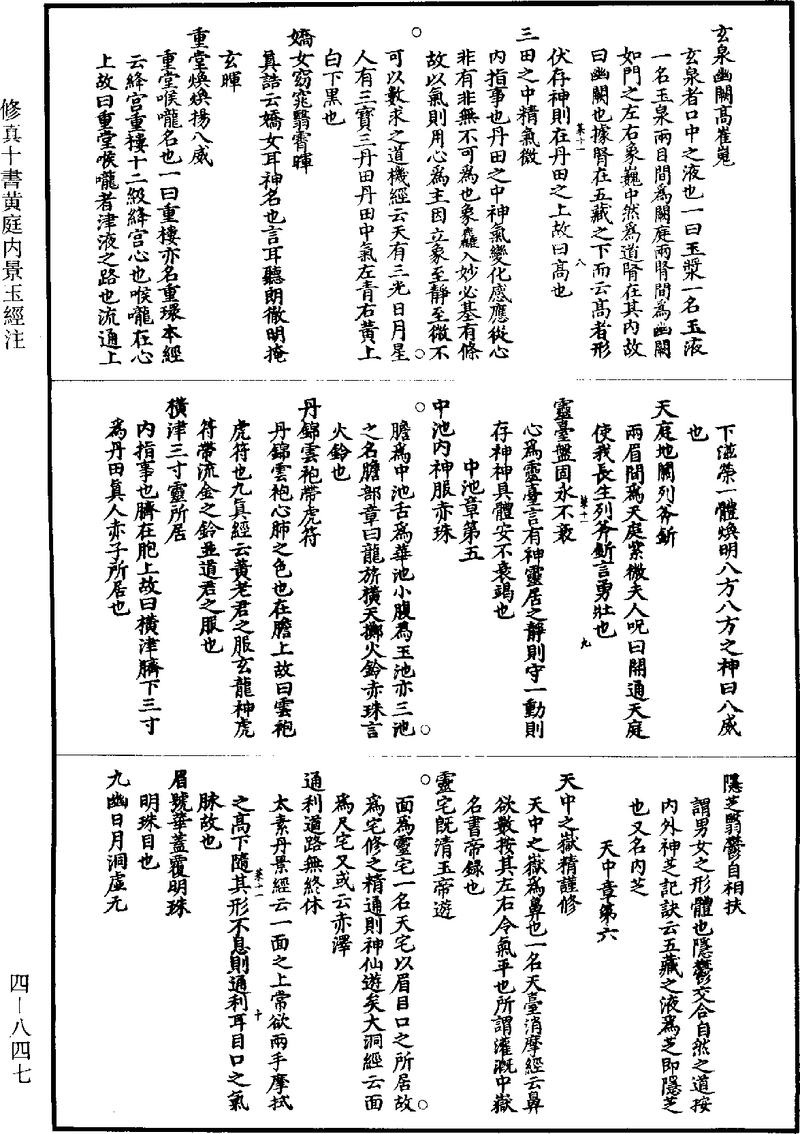 玄泉幽闕高崔嵬
玄泉者口中之液也一曰玉漿一名玉液
一名玉泉兩目間為闕庭兩腎間為幽闕
如門之左右象巍中然為道腎在其內故
曰幽闕也據腎在五藏之下而云高者形
菜十一
八
伏存神則在丹田之上故曰高也
三田之中精氣微
內指事也丹田之中神氣變化感應從心
非有非無不可為也象麤入妙必基有條
故以氣則用心為主因立象至靜至微不
可以數求之道機經云天有三光日月星
人有三寶三丹田丹田中氣左青右黃上
白下黑也
嬌女窈窕翳霄暉
真誥云嬌女耳神名也言耳聽朗徹明掩
玄暉
重堂煥煥揚八威
重堂喉嚨名也一曰重樓亦名重環本經
云絳宮重樓十二級絳宮心也喉嚨在心
上故曰重堂喉嚨者津液之路也流通上
下滋榮一體煥明八方八方之神曰八威
也
天庭地關列斧斤
兩眉間為天庭紫微夫人呪曰開通天庭
使我長生列斧斨言勇壯也
菜十一
九
靈臺盤固永不衰
心為靈臺言有神靈居之靜則守一動則
存神神具體安不衰竭也
中池章第五
中池內神服赤珠
膽為中池舌為華池小腹為玉池亦三池
之名膽部章曰龍旂橫天擲火鈴赤珠言
火鈴也
丹錦雲袍帶虎符
丹錦雲袍心肺之色也在膽上故曰雲袍
虎符也九真經云黃老君之服玄龍神虎
符帶流金之鈴並道君之服也
橫津三寸靈所居
內指事也臍在胞上故曰橫津臍下三寸
為丹田真人赤子所居也
隱芝翳鬱自相扶
謂男女之形體也隱鬱交合自然之道按
內外神芝記訣云五藏之液為芝即隱芝
也又名內芝
天中章第六
天中之嶽精謹修
天中之嶽為鼻也一名天臺消摩經云鼻
欲數按其左右令氣平也所謂灌溉中嶽
名書帝錄也
靈宅既清玉帝遊
面為靈宅一名天宅以眉目口之所居故
為宅修之精通則神仙遊矣大洞經云面
為尺宅又或云赤澤
通利道路無終休
太素丹景經云一面之上常欲兩手摩拭
菜十一
十
之高下隨其形不息則通利耳目口之氣
脉故也
眉號華蓋覆明珠
明珠目也
九幽日月洞虛无
修真十書黃庭內景玉經注
四—八四七